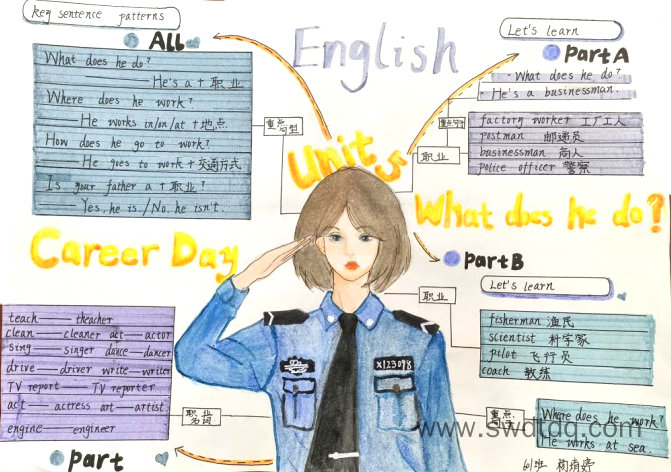 key sentence patterns
All
What does he do?
He's a + 职业
Where does he work?
He works in/on/at + 地点
How does he go to work?
He goes to work + 交通方式
Is your father a + 职业?
Yes, he is./No, he isn't.
重点句型
English
Unit 5
What does he do?
Career Day
Let's learn
Part A
What does he do?
He's a businessman.
重点句型
职业
factory worker 工厂工人
postman 邮递员
businessman 商人
police officer 警察
Part B
Let's learn
职业
fisherman 渔民
scientist 科学家
pilot 飞行员
coach 教练
重点
Where does he work?
He works at sea.
teach — theacher
clean — cleaner act — actor
sing — singer dance — dancer
drive — driver write — writer
TV report — TV reporter
act — actress art — artist
engine — engineer
职业名词
Part
X123098
www.swdtdq.com
61班